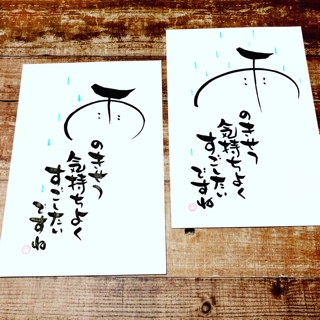 雨
のきせつ
気持ちよく
すごしたい
ですね
雨
のきせつ
気持ちよく
すごしたい
ですね